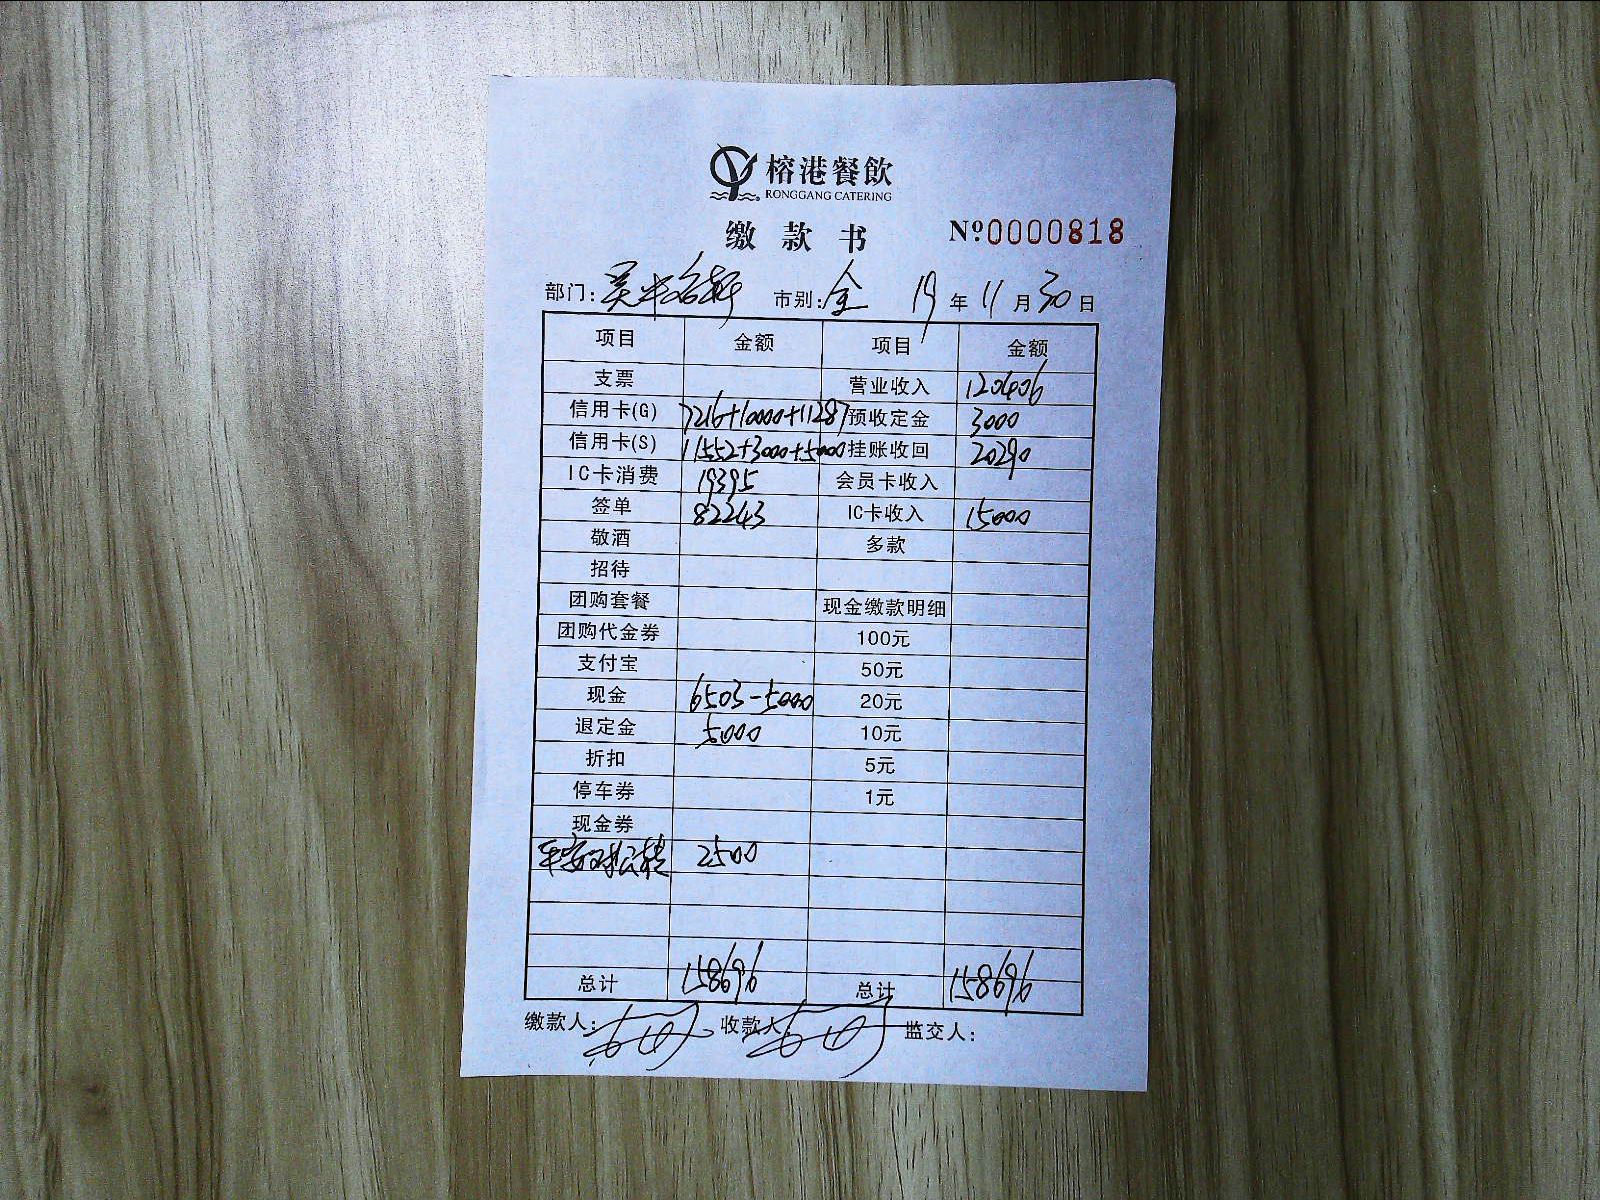 榕港餐飲
RONGGANG CATERING
缴款书 Nº0000818
部门: 市别:全 19年11月30日
项目 金额 项目 金额
支票 营业收入 120406
信用卡(G) 7216+10000+11287 预收定金 3000
信用卡(S) 11552+3000+5000 挂账收回 20290
IC卡消费 19395 会员卡收入
签单 82243 IC卡收入 15000
敬酒 多款
招待
团购套餐 现金缴款明细
团购代金券 100元
支付宝 50元
现金 6503-5000 20元
退定金 5000 10元
折扣 5元
停车券 1元
现金券
平安对公转 2500
总计 158696 总计 158696
缴款人: 收款人: 监交人: